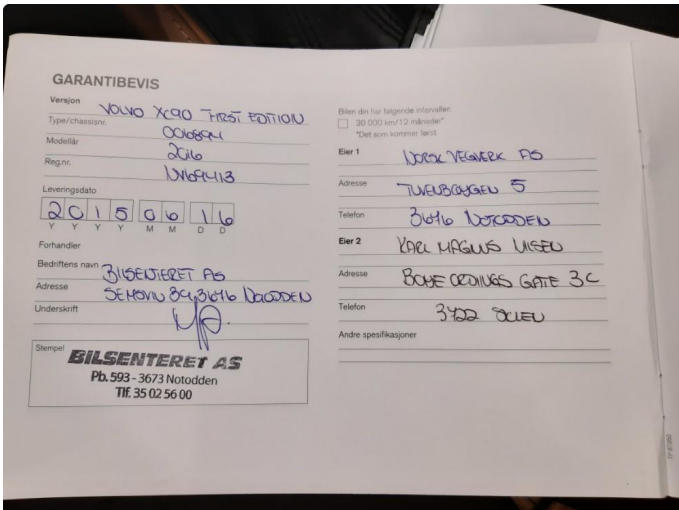 GARANTIBEVIS
Versjon VOLVO XC90 FIRST EDITION
Type/chassisnr. 0016894
Modellår 2016
Reg.nr.
Leveringsdato
2 0 1 5 0 6 1 6
Y Y Y Y M M D D
Forhandler
Bedriftens navn BILSENTERET AS
Adresse 3676 NOTODDEN
Underskrift
Stempel
BILSENTERET AS
Pb. 593 - 3673 Notodden
Tlf. 35 02 56 00
Bilen din har følgende intervaller:
30 000 km/12 måneder*
*Det som kommer først
Eier 1 NORSK VEGVERK AS
Adresse 5
Telefon 3676 NOTODDEN
Eier 2 KARL MAGNUS
Adresse GATE 3C
Telefon 3722 SKIEN
Andre spesifikasjoner